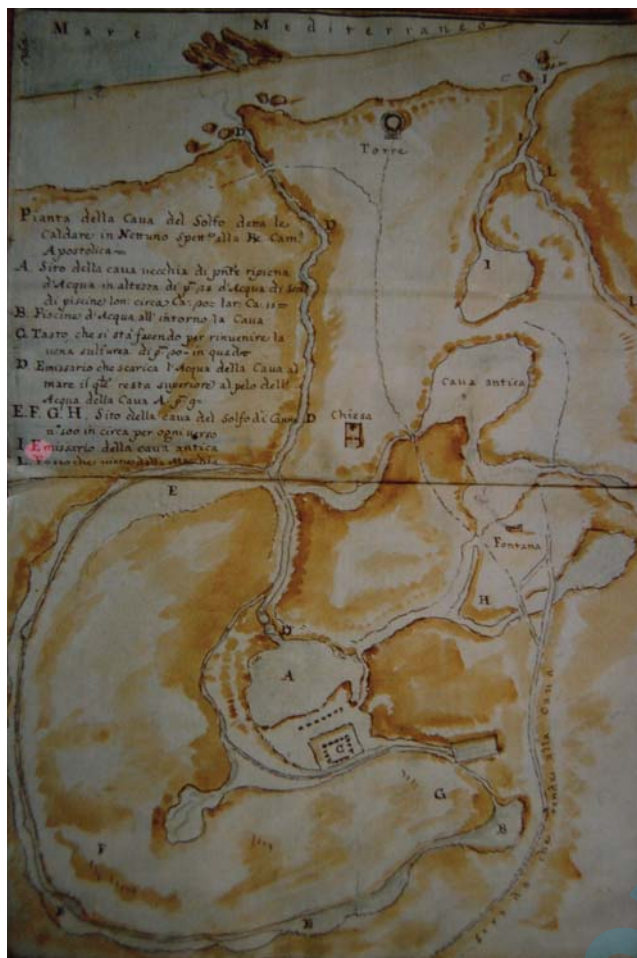 Mare Mediterraneo
Torre
Pianta della Caua del Solfo detta le
Caldare in Nettuno Spett.e alla R. Cam.a
Apostolica
A. Sito della caua uecchia di pnte ripiena
d'Acqua in altezza di d'Acqua di
di piscine lon: circa Ca: 90 lar: Ca:
B. Piscine d'Acqua all'intorno la Caua
C. Tasto che si stà facendo per rinuenire la
uena sulfurea di in quadro
D. Emissario che scarica l'Acqua della Caua al
mare il qle resta superiore al pelo dell'
Acqua della Caua A
E. F. G. H. Sito della caua del Solfo di Canne
n.o 100 in circa per ogni uerso
I. Emissario della caua antica
L. Fosso che uiene dalla Macchia
D
D
D
D
I
I
I
L
L
Caua antica
Chiesa
E
Fontana
H
A
C
G
B
F
B
Strada che conduce alla Caua